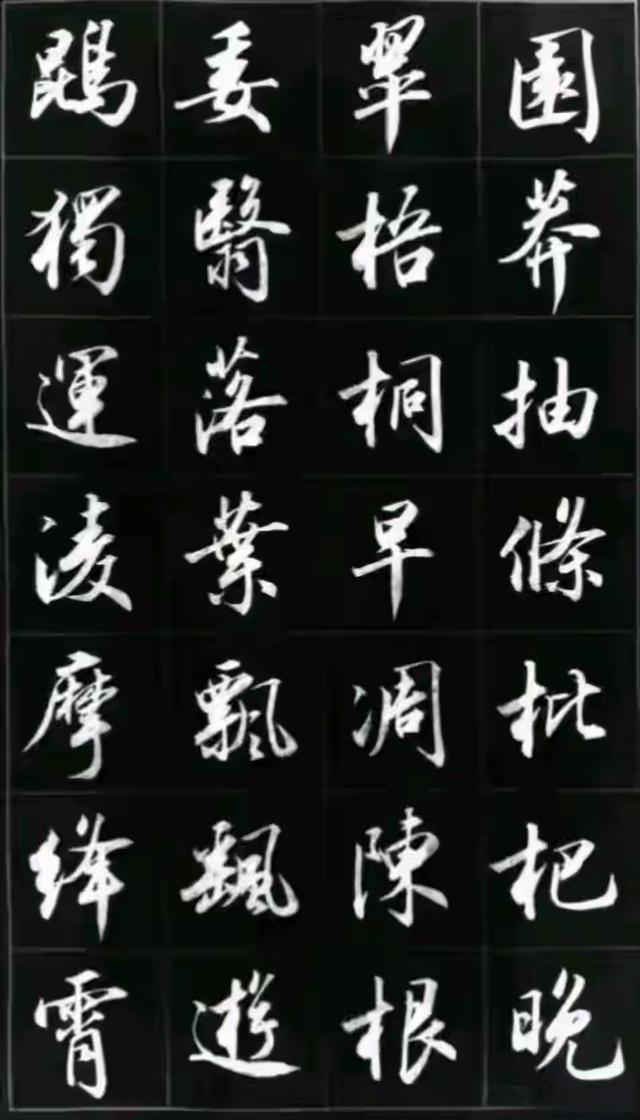 園莽抽條枇杷晚
翠梧桐早凋陳根
委翳落葉飄颻遊
鵾獨運凌摩絳霄